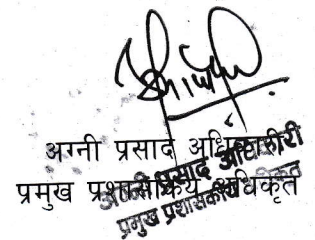 अग्नी प्रसाद अधिकारी
प्रमुख प्रशासकिय अधिकृत
अग्नी प्रसाद अधिकारी
प्रमुख प्रशासकीय अधिकृत